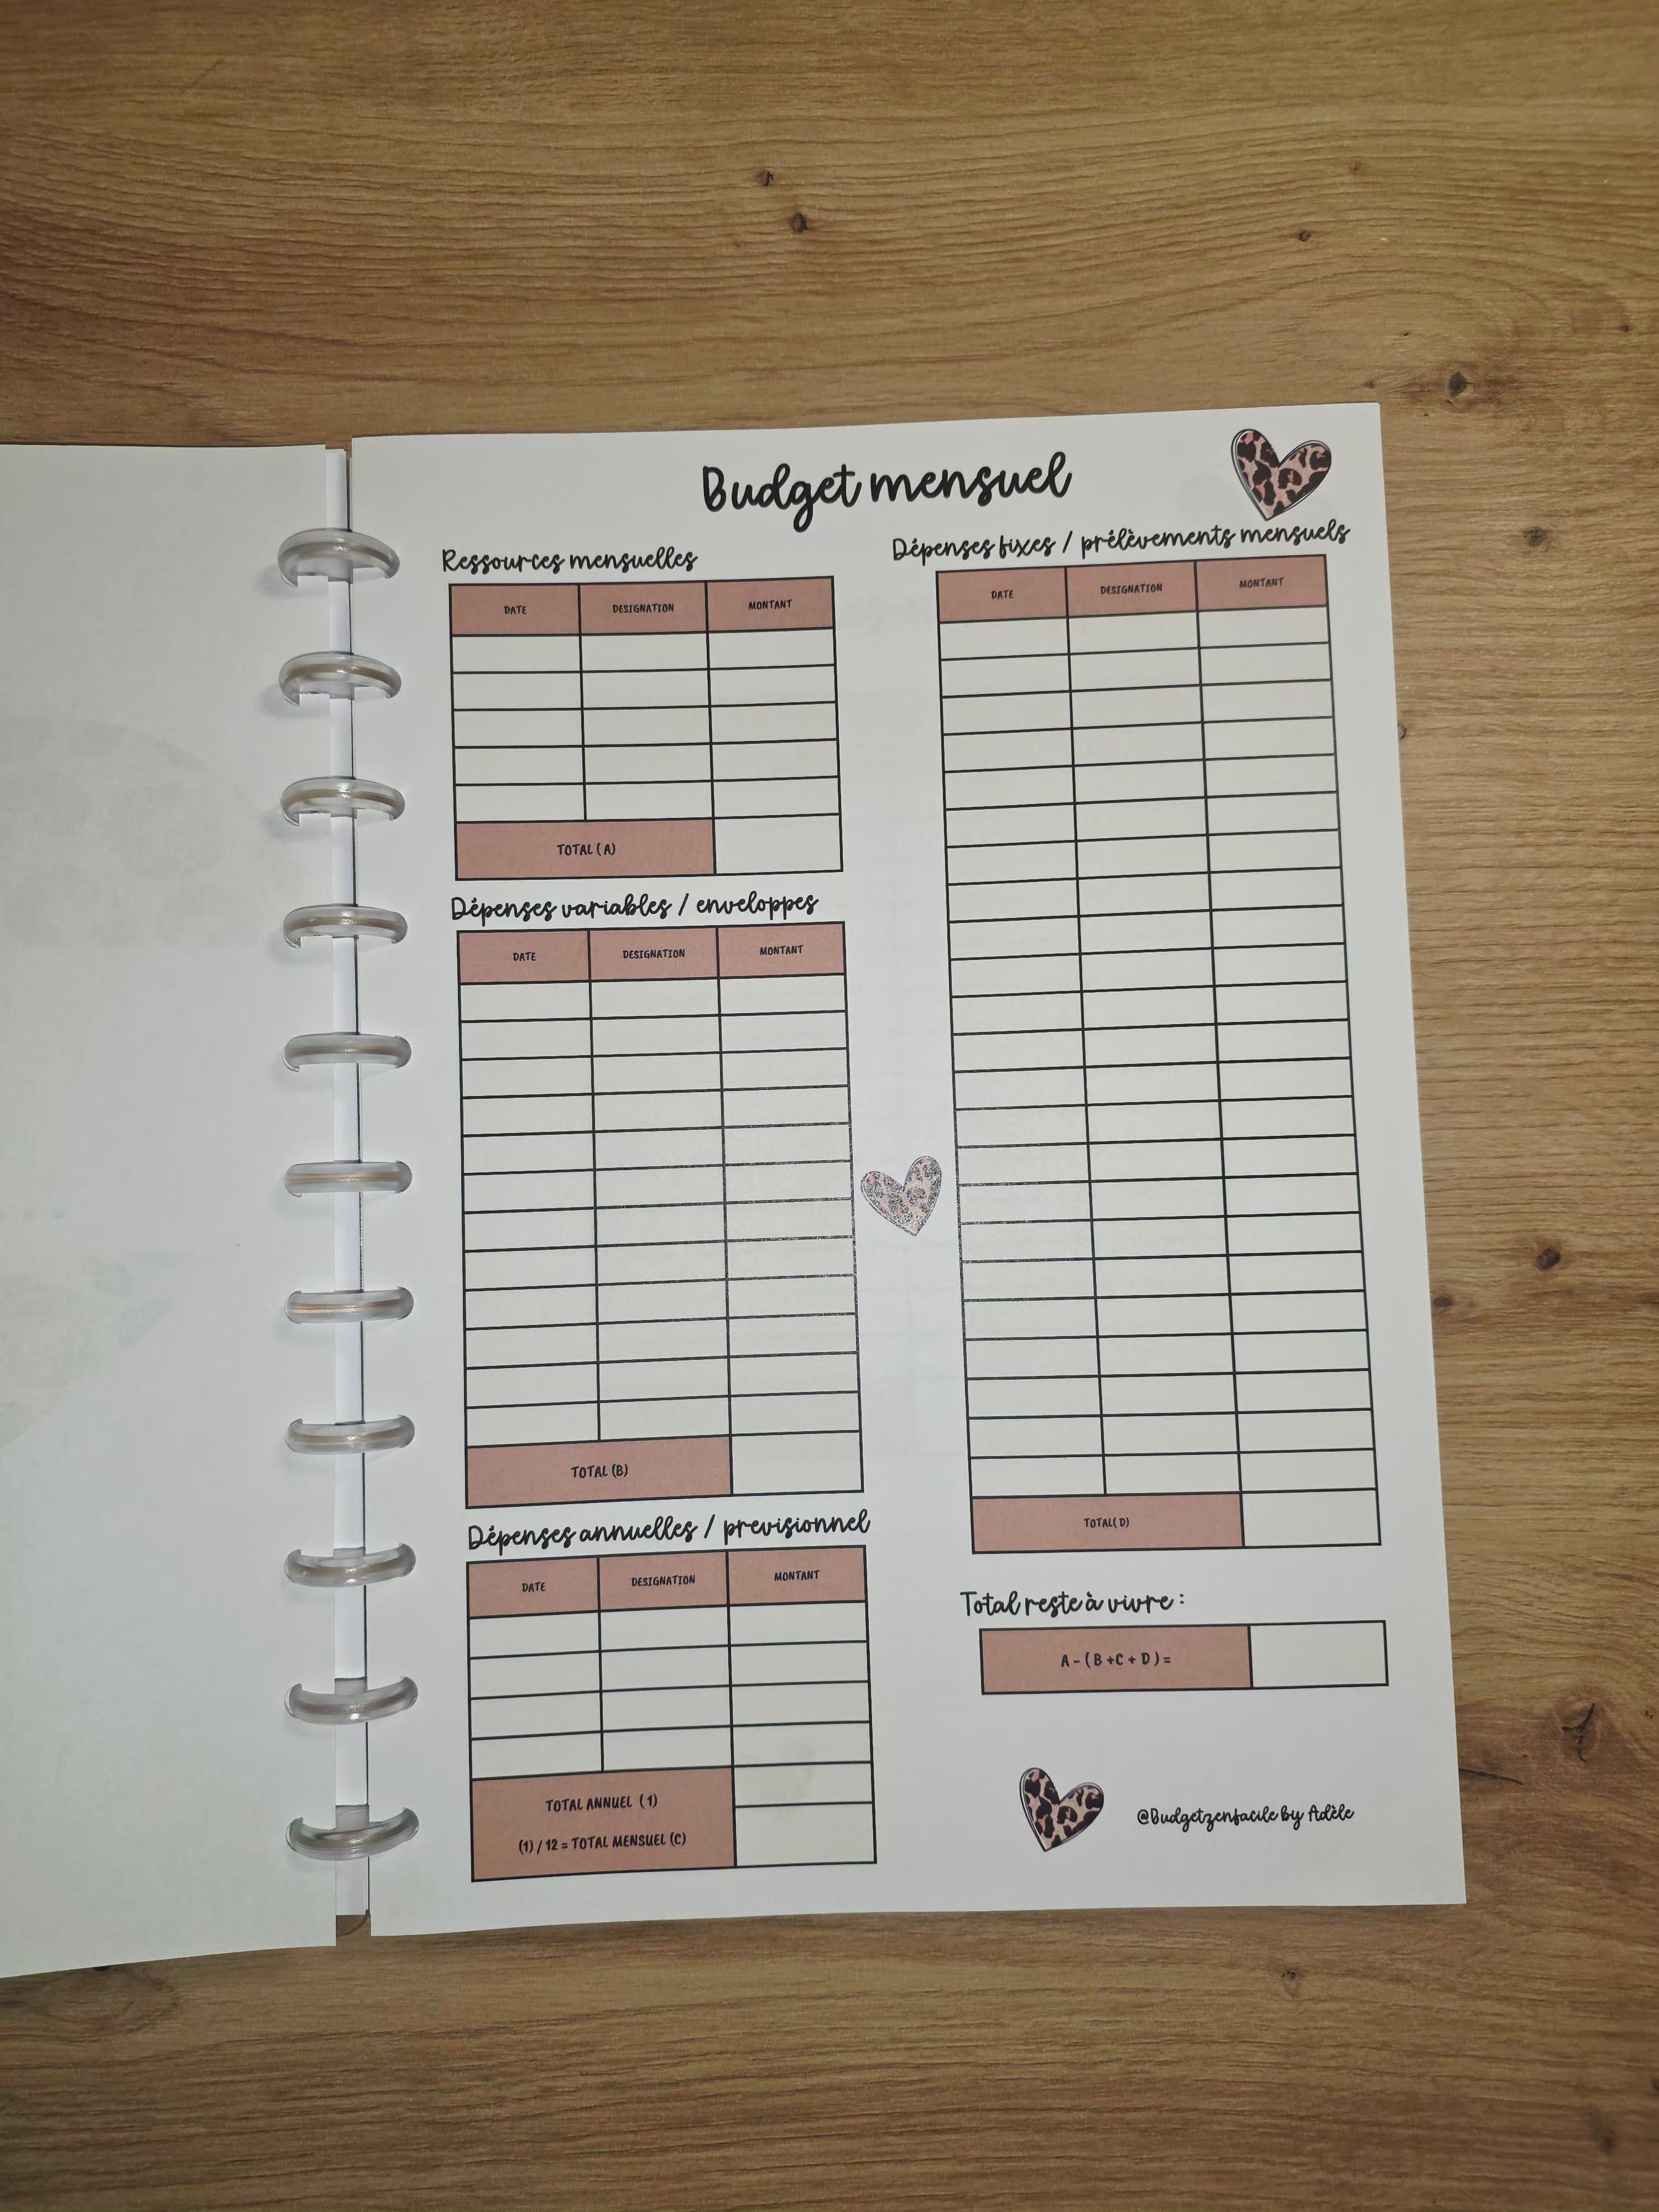 Budget mensuel
Ressources mensuelles
DATE DESIGNATION MONTANT
TOTAL (A)
Dépenses variables / enveloppes
DATE DESIGNATION MONTANT
TOTAL (B)
Dépenses annuelles / previsionnel
DATE DESIGNATION MONTANT
TOTAL ANNUEL (1)
(1) / 12 = TOTAL MENSUEL (C)
Dépenses fixes / prélèvements mensuels
DATE DESIGNATION MONTANT
TOTAL( D)
Total reste à vivre :
A - ( B + C + D ) =
@Budgetzenfacile by Adèle